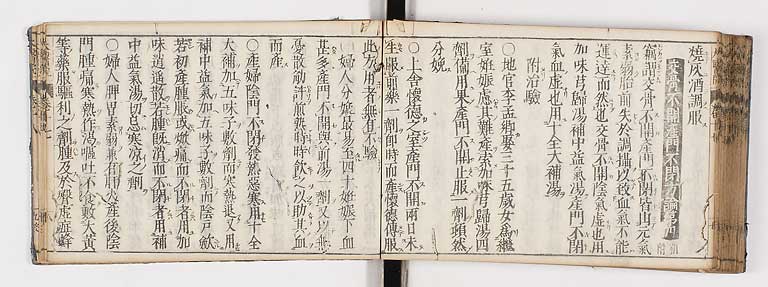 燒灰酒調服
交骨不開產門不閉方論第四
竊謂交骨不開產門不閉皆由元氣
素弱胎前失於調攝以致血氣不能
運達而然也交骨不開陰氣虛也用
加味芎歸湯補中益氣湯產門不閉
氣血虛也用十全大補湯
附治驗
○地官李孟卿娶三十五歲女為繼
室妊娠慮其難產索加味芎歸湯四
劑備用果產門不開止服一劑頃然
分娩
○上舍懷德之室產門不開兩日未
生服前藥一劑即時而產懷德傳服
此方用者無不驗
○一婦人分娩最易至四十妊娠下血
甚多產門不開與前湯一劑又以無
憂散斤許煎熟時時飲之以助其血
而產
○產婦陰門不閉發熱惡寒用十全
大補加五味子數劑而寒熱退又用
補中益氣加五味子數劑而陰戶斂
若初產腫脹或焮痛而不閉者用加
味逍遙散若腫既消而不閉者用補
中益氣湯切忌寒涼之劑
○一婦人脾胃素弱兼有肝火產後陰
門腫痛寒熱作渴嘔吐不食敷大黃
等藥服驅利之劑腫及於臀虛症蜂